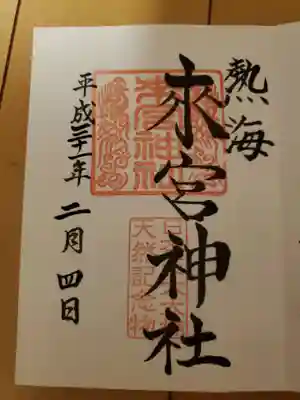 熱海
來宮神社
平成三十一年二月四日
來宮神社
天然記念物